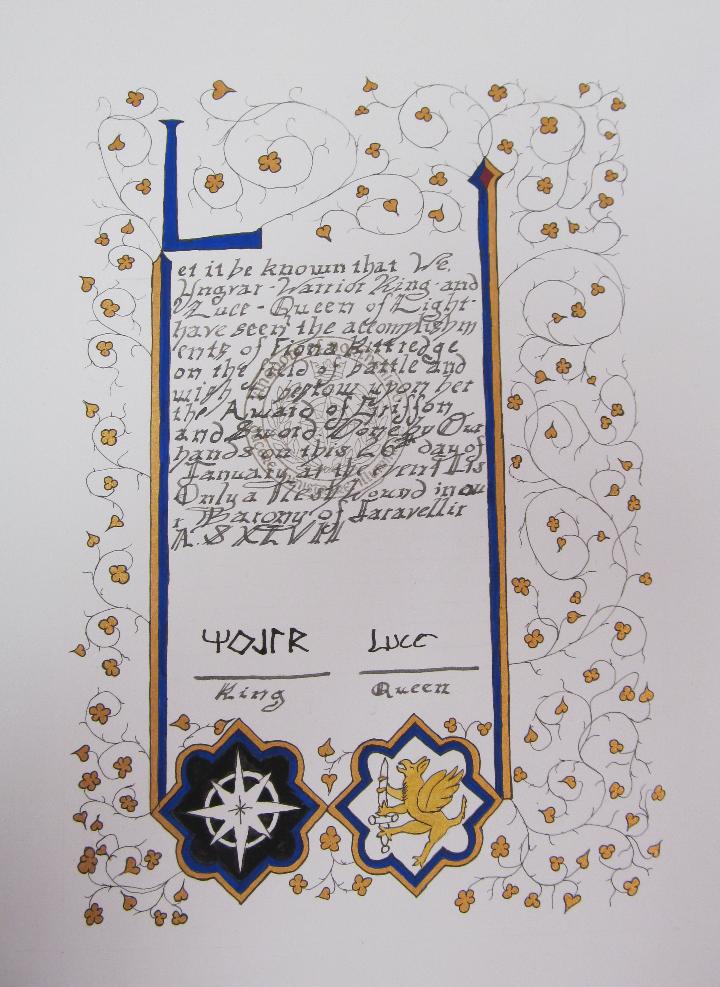 Let it be known that We,
Yngvar - Warrior King - and
Luce - Queen of Light -
have seen the accomplishm
ents of Fiona Kittredge
on the field of battle and
wish bestow upon her
the Award of Griffon
and Sword Done by Our
hands on this 26th day of
January, at the event Tis
Only a Flesh Wound in ou
r Barony of Jaravellir
A.S XLVII
Luce
King
Queen